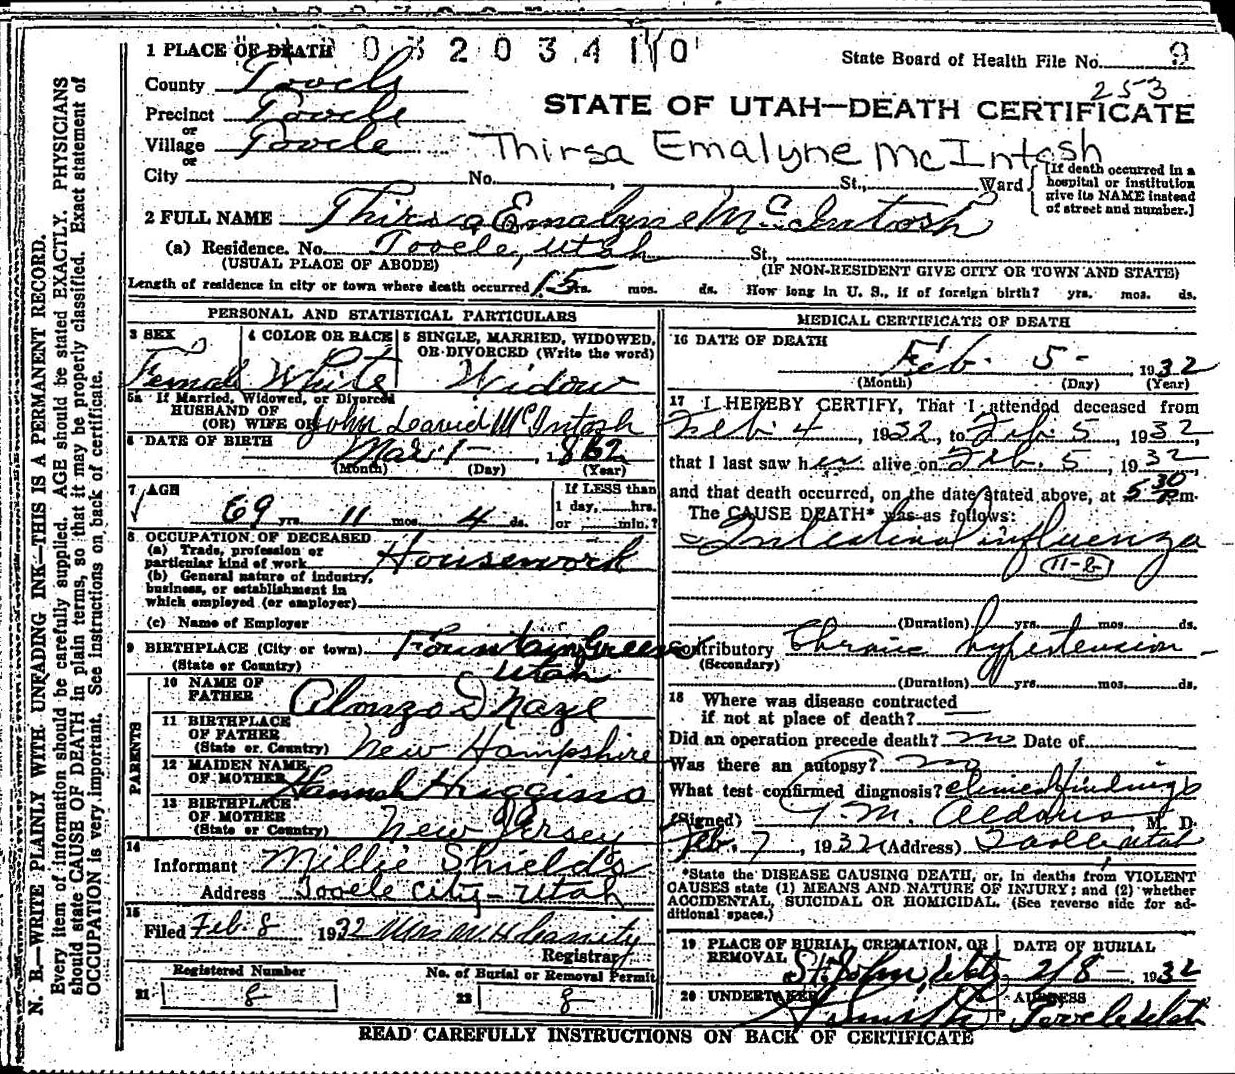 1 PLACE OF DEATH 03203410
State Board of Health File No. 9
County Tooele
253
Precinct Tooele
STATE OF UTAH—DEATH CERTIFICATE
or
Village Tooele
Thirsa Emalyne McIntosh
or
City No. , St., Ward
[If death occurred in a hospital or institution give its NAME instead of street and number.]
2 FULL NAME Thirsa Emalyne McIntosh
(a) Residence. No. Tooele, Utah St.,
(USUAL PLACE OF ABODE) (IF NON-RESIDENT GIVE CITY OR TOWN AND STATE)
Length of residence in city or town where death occurred 15 yrs. mos. ds. How long in U. S., if of foreign birth? yrs. mos. ds.
PERSONAL AND STATISTICAL PARTICULARS
3 SEX Female
4 COLOR OR RACE White
5 SINGLE, MARRIED, WIDOWED, OR DIVORCED (Write the word) Widow
5a If Married, Widowed, or Divorced
HUSBAND OF
(OR) WIFE OF John David McIntosh
6 DATE OF BIRTH Mar. 1 - , 1862
(Month) (Day) (Year)
7 AGE 69 yrs. 11 mos. 4 ds.
If LESS than
1 day, hrs.
or min.?
8 OCCUPATION OF DECEASED
(a) Trade, profession or
particular kind of work Housework
(b) General nature of industry,
business, or establishment in
which employed (or employer)
(c) Name of Employer
9 BIRTHPLACE (City or town) Fountain Green
(State or Country) Utah
PARENTS
10 NAME OF
FATHER Alonzo D Naze
11 BIRTHPLACE
OF FATHER
(State or Country) New Hampshire
12 MAIDEN NAME
OF MOTHER Hannah Huggins
13 BIRTHPLACE
OF MOTHER
(State or Country) New Jersey
14
Informant Millie Shields
Address Tooele City - Utah
15
Filed Feb. 8 1932 Mrs M H Cassity
Registrar
Registered Number
21 8
No. of Burial or Removal Permit
22 8
MEDICAL CERTIFICATE OF DEATH
16 DATE OF DEATH
Feb. 5 - 1932
(Month) (Day) (Year)
17 I HEREBY CERTIFY, That I attended deceased from
Feb. 4, 1932, to Feb. 5, 1932,
that I last saw her alive on Feb. 5, 1932
and that death occurred, on the date stated above, at 5 30 P.m.
The CAUSE DEATH* was as follows:
Intestinal influenza
11-B
(Duration) yrs. mos. ds.
Contributory Chronic hypertension
(Secondary)
(Duration) yrs. mos. ds.
18 Where was disease contracted
if not at place of death?
Did an operation precede death? no Date of
Was there an autopsy? no
What test confirmed diagnosis? clinical findings
(Signed) M. Aldous M. D.
Feb. 7, 1932 (Address) Tooele Utah
*State the DISEASE CAUSING DEATH, or, in deaths from VIOLENT
CAUSES state (1) MEANS AND NATURE OF INJURY; and (2) whether
ACCIDENTAL, SUICIDAL OR HOMICIDAL. (See reverse side for ad-
ditional space.)
19 PLACE OF BURIAL, CREMATION, OR
REMOVAL St. John, Utah
DATE OF BURIAL
2/8 - 1932
20 UNDERTAKER Smith
ADDRESS
Tooele Utah
READ CAREFULLY INSTRUCTIONS ON BACK OF CERTIFICATE
N. B.—WRITE PLAINLY WITH UNFADING INK—THIS IS A PERMANENT RECORD.
Every item of information should be carefully supplied. AGE should be stated EXACTLY. PHYSICIANS
should state CAUSE OF DEATH in plain terms, so that it may be properly classified. Exact statement of
OCCUPATION is very important. See instructions on back of certificate.